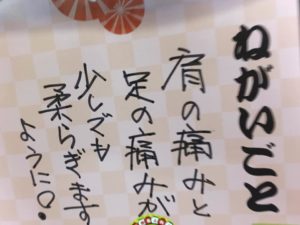 ねがいごと
肩の痛みと
足の痛みが
少しでも
柔らぎます
ように♡。